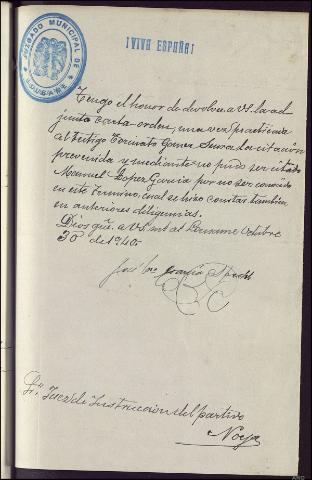 JUZGADO MUNICIPAL DE
LOUSAME
¡VIVA ESPAÑA!
Tengo el honor de devolver a VS. la ad
junta carta orden, una vez practicada
al testigo Torcuato Gomez la citación
prevenida y mediante no pudo ser citado
Manuel Lopez Garcia por no ser conocido
en este termino, cual se hizo constar tambien
en anteriores diligencias.
Dios gue. a VS. ms. as. Lousame Octubre
30 de 1940.
José
Sr. Juez de Instrucción del partido
Noya